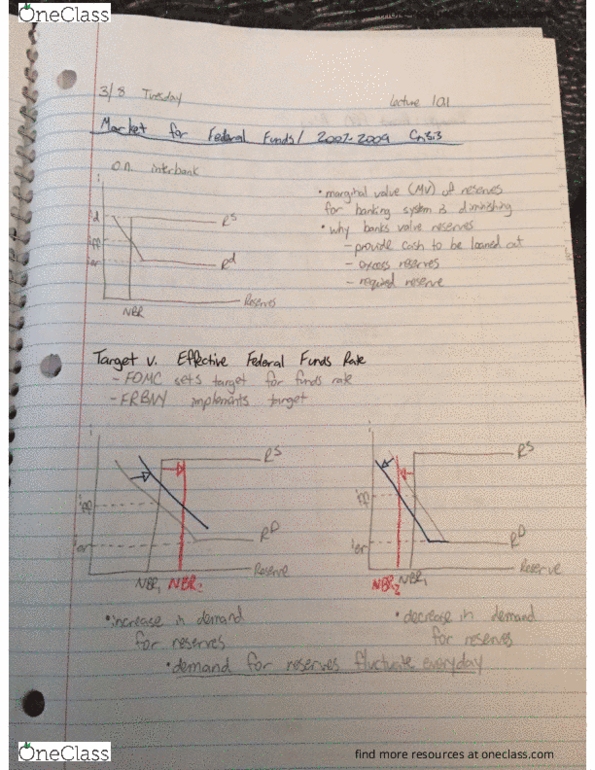 OneClass
3/8 Tuesday
Lecture 10.1
Market for Federal Funds / 2007-2009 Crisis
O.N. interbank
i
id
iff
ior
Rs
Rd
Reserves
NBR
• marginal value (MV) of reserves
for banking system is diminishing
• why banks value reserves
- provide cash to be loaned out
- excess reserves
- required reserve
Target v. Effective Federal Funds Rate
- FOMC sets target for funds rate
- FRBNY implements target
i
iff
ior
RS
RD
Reserve
NBR1 NBR2
i
iff
ior
RS
RD
Reserve
NBR2 NBR1
• increase in demand
for reserves
• decrease in demand
for reserves
• demand for reserves fluctuate everyday
OneClass
find more resources at oneclass.com